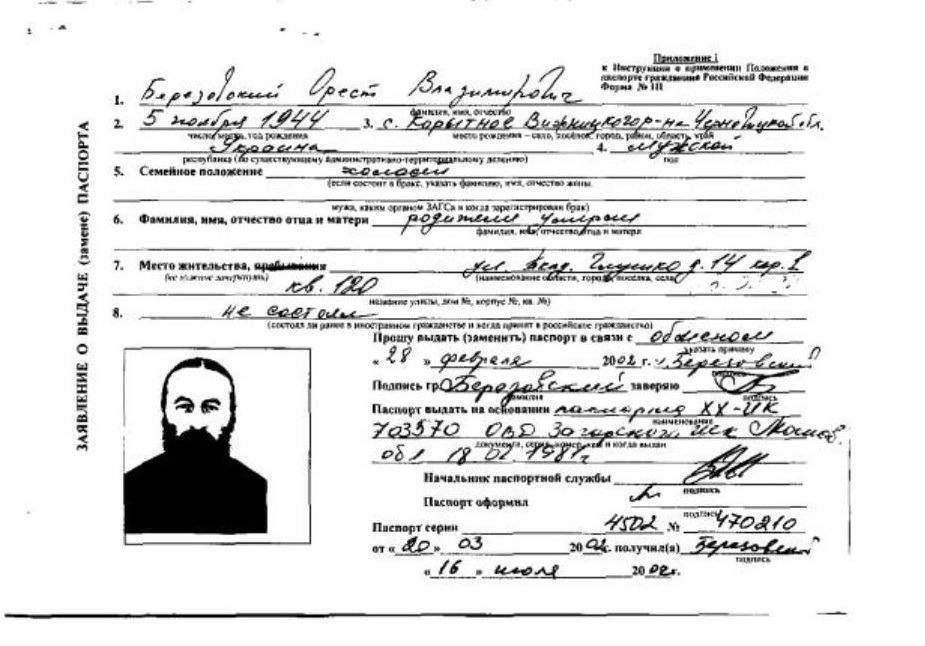 Приложение 1
к Инструкции о применении Положения о
паспорте гражданина Российской Федерации
Форма № 1П
ЗАЯВЛЕНИЕ О ВЫДАЧЕ (замене) ПАСПОРТА
1. Березовский Орест Владимирович
фамилия, имя, отчество
2. 5 ноября 1944 3. с. Корытное Вижницкого р-на Черновицкой обл.
число, месяц, год рождения место рождения – село, посёлок, город, район, область, край
Украина 4. мужской
республика (по существующему административно-территориальному делению) пол
5. Семейное положение холост
(если состоит в браке, указать фамилию, имя, отчество жены
мужа, каким органом ЗАГСа и когда зарегистрирован брак)
6. Фамилия, имя, отчество отца и матери родители умерли
фамилия, имя, отчество отца и матери
7. Место жительства, пребывания ул. Акад. Глушко д. 14 кор. 1
(не нужное зачеркнуть) (наименование области, города, посёлка, села)
кв. 120
название улицы, дом №, корпус №, кв. №)
8. не состоял
(состоял ли ранее в иностранном гражданстве и когда принят в российское гражданство)
Прошу выдать (заменить) паспорт в связи с обменом
указать причину
« 28 » февраля 2002 г. Березовский
подпись
Подпись гр. Березовский заверяю
фамилия подпись
Паспорт выдать на основании паспорта XX-ИК
наименование
703570 ОВД Загорского
документа, серия, номер, кем и когда выдан
обл 18 02 1981г
Начальник паспортной службы
подпись
Паспорт оформил
подпись
Паспорт серии 4502 № 470210
от « 20 » 03 2002г. получил(а) Березовский
подпись
« 16 » июля 2002г.